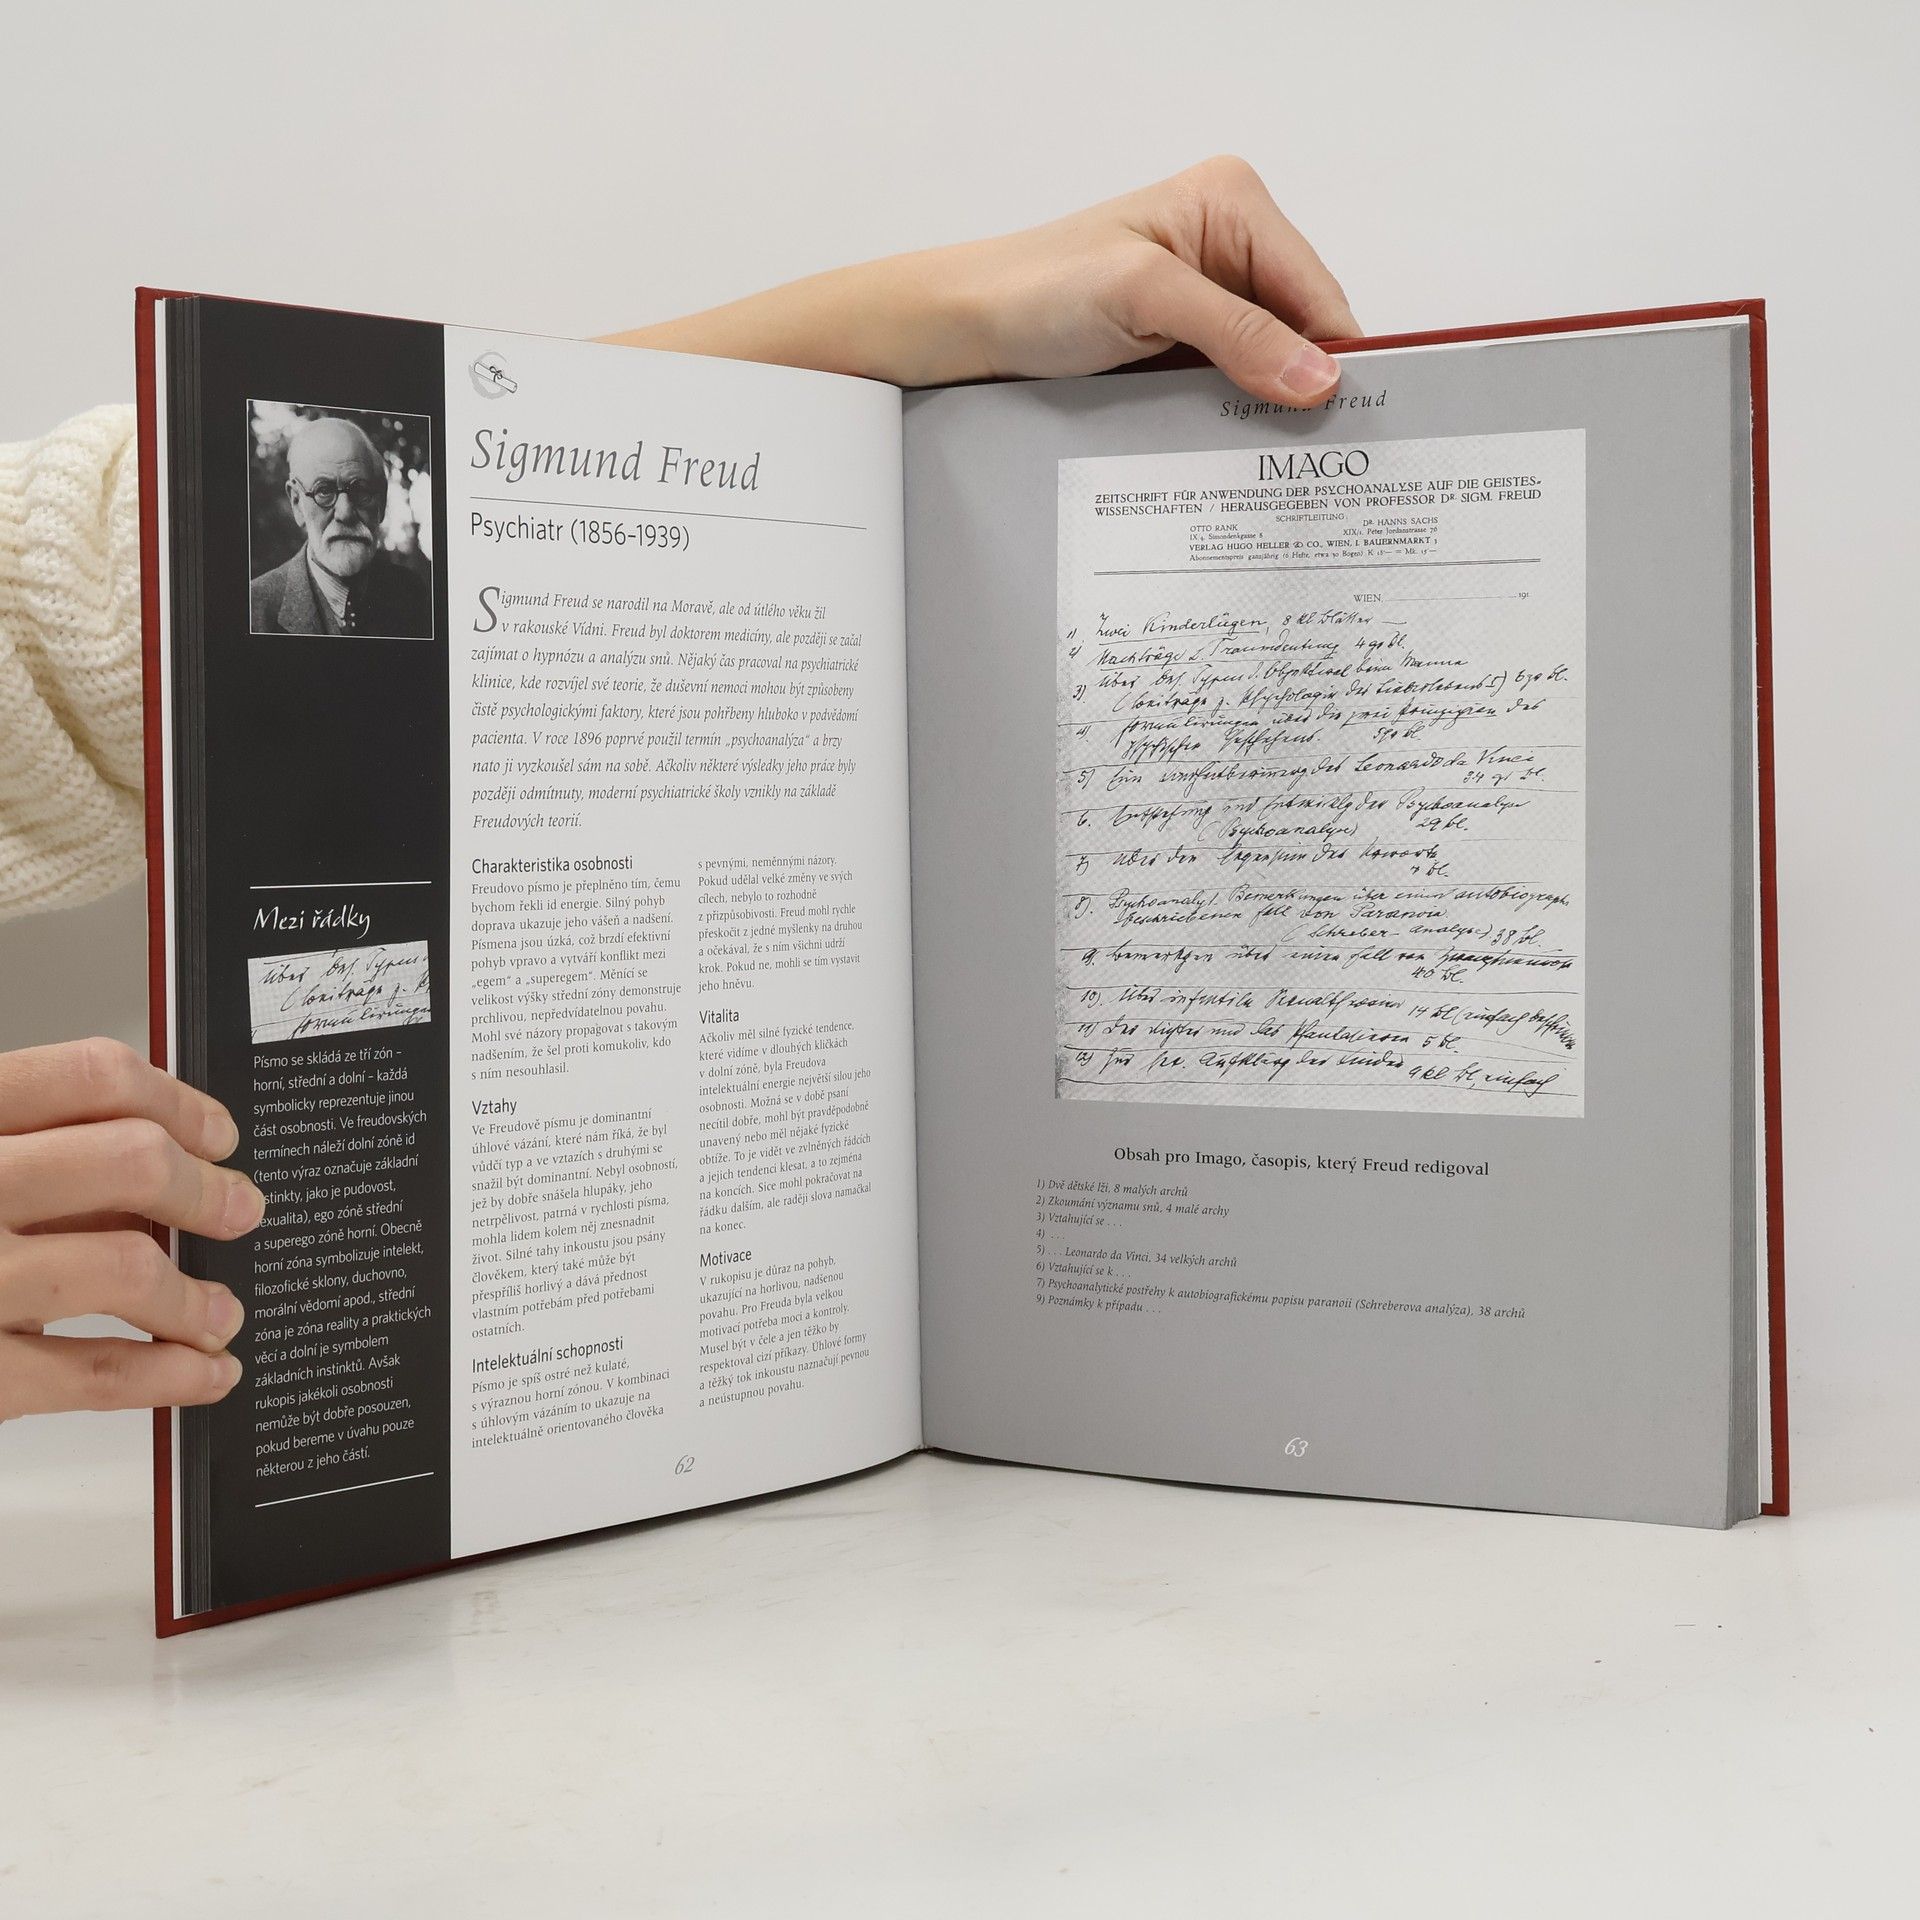 Mezi řádky
Písmo se skládá ze tří zón –
horní, střední a dolní – každá
symbolicky reprezentuje jinou
část osobnosti. Ve freudovských
termínech náleží dolní zóně id
(tento výraz označuje základní
stinkty, jako je pudovost,
exualita), ego zóně střední
a superego zóně horní. Obecně
horní zóna symbolizuje intelekt,
filozofické sklony, duchovno,
morální vědomí apod., střední
zóna je zóna reality a praktických
věcí a dolní je symbolem
základních instinktů. Avšak
rukopis jakékoli osobnosti
nemůže být dobře posouzen,
pokud bereme v úvahu pouze
některou z jeho částí.
Sigmund Freud
Psychiatr (1856–1939)
Sigmund Freud se narodil na Moravě, ale od útlého věku žil
v rakouské Vídni. Freud byl doktorem medicíny, ale později se začal
zajímat o hypnózu a analýzu snů. Nějaký čas pracoval na psychiatrické
klinice, kde rozvíjel své teorie, že duševní nemoci mohou být způsobeny
čistě psychologickými faktory, které jsou pohřbeny hluboko v podvědomí
pacienta. V roce 1896 poprvé použil termín „psychoanalýza“ a brzy
nato ji vyzkoušel sám na sobě. Ačkoliv některé výsledky jeho práce byly
později odmítnuty, moderní psychiatrické školy vznikly na základě
Freudových teorií.
Charakteristika osobnosti
Freudovo písmo je přeplněno tím, čemu
bychom řekli id energie. Silný pohyb
doprava ukazuje jeho vášeň a nadšení.
Písmena jsou úzká, což brzdí efektivní
pohyb vpravo a vytváří konflikt mezi
„egem“ a „superegem“. Měnící se
velikost výšky střední zóny demonstruje
prchlivou, nepředvídatelnou povahu.
Mohl své názory propagovat s takovým
nadšením, že šel proti komukoliv, kdo
s ním nesouhlasil.
Vztahy
Ve Freudově písmu je dominantní
úhlové vázání, které nám říká, že byl
vůdčí typ a ve vztazích s druhými se
snažil být dominantní. Nebyl osobností,
jež by dobře snášela hlupáky, jeho
netrpělivost, patrná v rychlosti písma,
mohla lidem kolem něj znesnadnit
život. Silné tahy inkoustu jsou psány
člověkem, který také může být
přespříliš horlivý a dává přednost
vlastním potřebám před potřebami
ostatních.
Intelektuální schopnosti
Písmo je spíš ostré než kulaté,
s výraznou horní zónou. V kombinaci
s úhlovým vázáním to ukazuje na
intelektuálně orientovaného člověka
s pevnými, neměnnými názory.
Pokud udělal velké změny ve svých
cílech, nebylo to rozhodně
z přizpůsobivosti. Freud mohl rychle
přeskočit z jedné myšlenky na druhou
a očekával, že s ním všichni udrží
krok. Pokud ne, mohli se tím vystavit
jeho hněvu.
Vitalita
Ačkoliv měl silné fyzické tendence,
které vidíme v dlouhých kličkách
v dolní zóně, byla Freudova
intelektuální energie největší silou jeho
osobnosti. Možná se v době psaní
necítil dobře, mohl být pravděpodobně
unavený nebo měl nějaké fyzické
obtíže. To je vidět ve zvlněných řádcích
a jejich tendenci klesat, a to zejména
na koncích. Sice mohl pokračovat na
řádku dalším, ale raději slova namačkal
na konec.
Motivace
V rukopisu je důraz na pohyb,
ukazující na horlivou, nadšenou
povahu. Pro Freuda byla velkou
motivací potřeba moci a kontroly.
Musel být v čele a jen těžko by
respektoval cizí příkazy. Úhlové formy
a těžký tok inkoustu naznačují pevnou
a neústupnou povahu.
62
Sigmund Freud
IMAGO
ZEITSCHRIFT FÜR ANWENDUNG DER PSYCHOANALYSE AUF DIE GEISTES-
WISSENSCHAFTEN / HERAUSGEGEBEN VON PROFESSOR DR. SIGM. FREUD
SCHRIFTLEITUNG:
OTTO RANK DR. HANNS SACHS
IX/4, Simondenkgasse 8 XIX/1, Peter Jordanstrasse 76
VERLAG HUGO HELLER & CO., WIEN, I. BAUERNMARKT 3
Abonnementspreis ganzjährig (6 Hefte, etwa 30 Bogen) K 18·— = Mk. 15·—
WIEN, 191
1) Zwei Kinderlügen, 8 kl Blätter —
2) Nachträge z. Traumdeutung 4 gr Bl.
3) Über bes. Typus d. Objektwahl beim Manne
(Beiträge z. Psychologie des Liebeslebens I) 6 gr Bl.
4) Formulierungen über die zwei Prinzipien des
psychischen Geschehens. 5 gr Bl.
5) Eine Kindheitserinnerung des Leonardo da Vinci
34 gr Bl.
6. Entstehung und Entwicklg der Psychoanalyse
(Psychoanalyse) 29 Bl.
7) Über den Gegensinn der Urworte
8). Psychoanalyt. Bemerkungen über einen autobiograph.
beschriebenen Fall von Paranoia
(Schreber-Analyse) 38 Bl.
9). Bemerkgen über einen Fall von Zwangsneurose
40 Bl.
10). Über infantile Sexualtheorien 14 Bl (einfach beschrieben
11) Der Dichter und das Phantasieren 5 Bl.
12) Zur sex. Aufklärg der Kinder 9 kl Bl, einfach
Obsah pro Imago, časopis, který Freud redigoval
1) Dvě dětské lži, 8 malých archů
2) Zkoumání významu snů, 4 malé archy
3) Vztahující se . . .
4) . . .
5) . . . Leonardo da Vinci, 34 velkých archů
6) Vztahující se k . . .
7) Psychoanalytické postřehy k autobiografickému popisu paranoii (Schreberova analýza), 38 archů
9) Poznámky k případu . . .
63